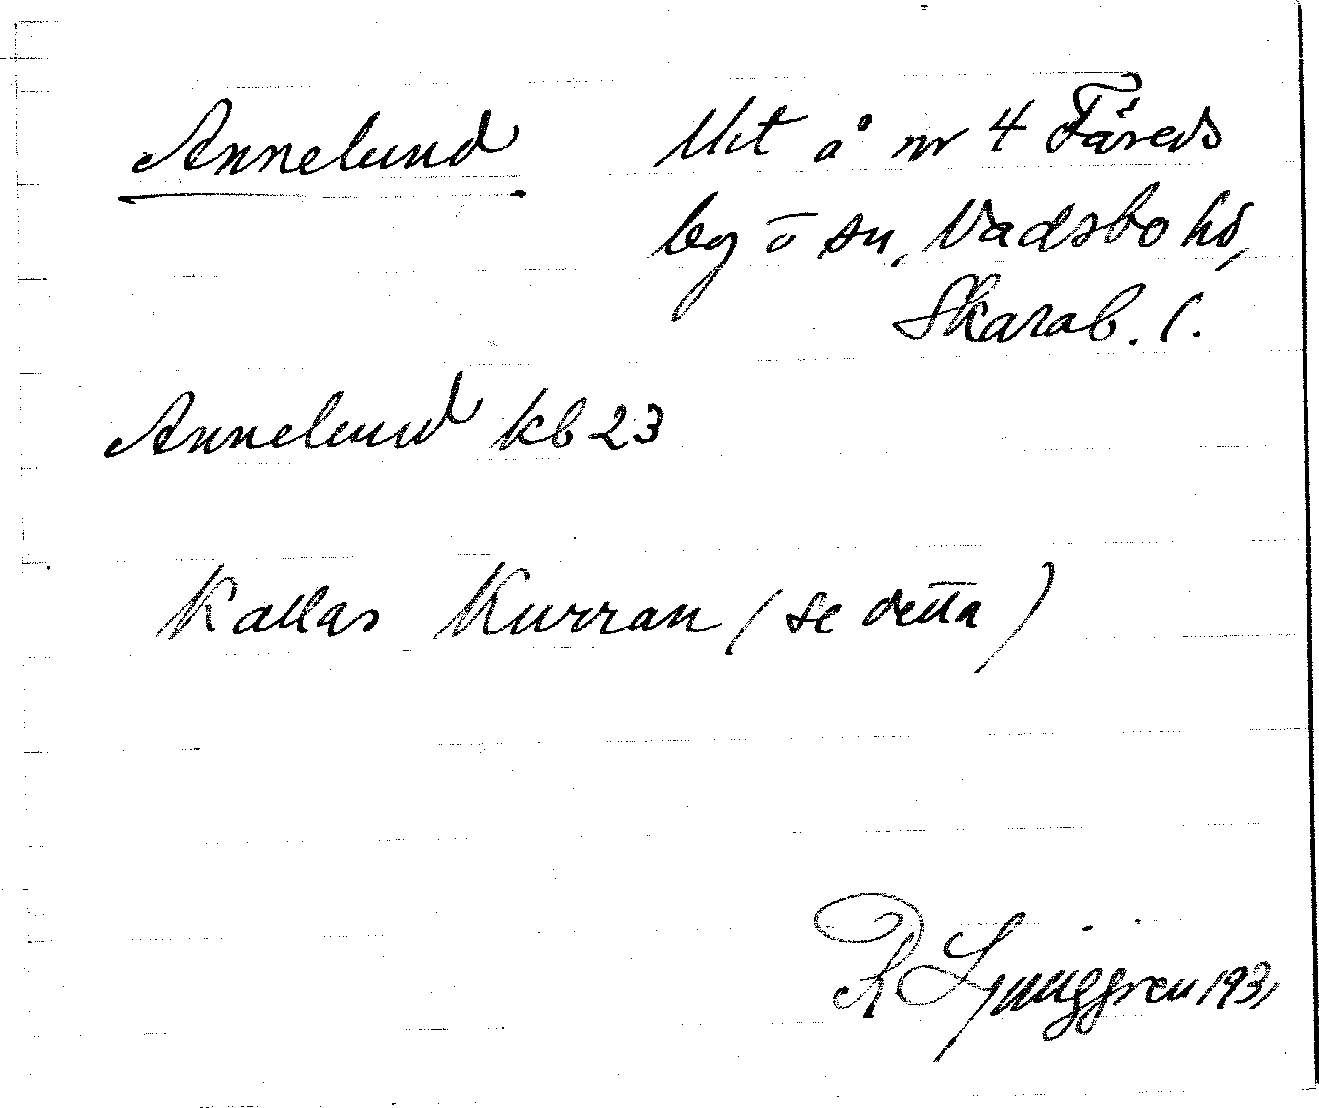 Annelund Utt å nr 4 Fåreds
by o sn, Vadsbo hd,
Skarab. l.
Annelund kb 23
Kallas Kurran (se detta)
R Ljunggren 1931